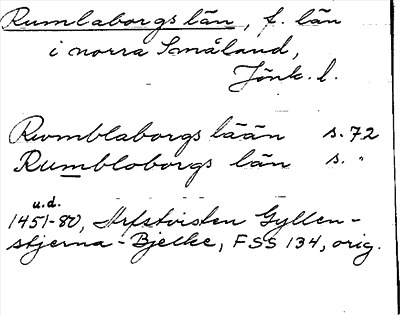 Rumlaborgs län, f. län
i norra Småland,
Jönk. l.
Rwmblaborgs lään s. 72
Rumbloborgs län s. "
u.d.
1451-80, Arfstvisten Gyllen-
stjerna-Bjelke, FSS 134, orig.